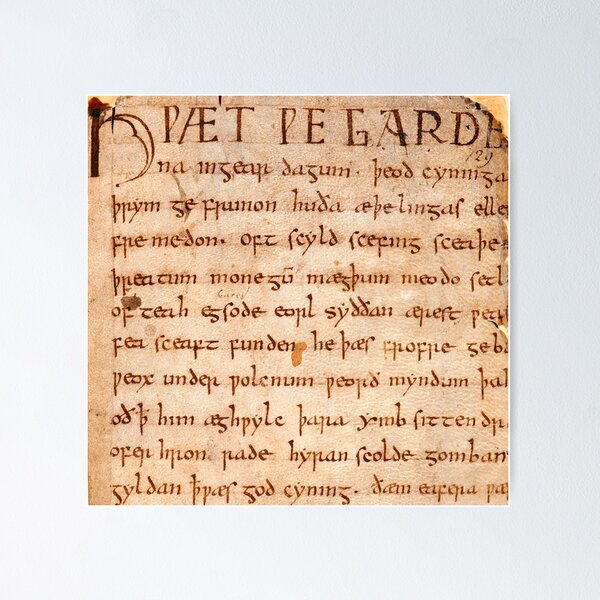 HǷÆT ǷE GARDE
129
na ingear dagum. þeod cyninga
þrym ge frunon huða æþelingas elle
fre medon. oft scyld scefing sceaþe
þreatum monegū mægþum meodo setl
of teah egsode eorl syððan ærest ƿear
fea sceaft funden he þæs frofre geba
ƿeox under ƿolcnum ƿeorð myndum þah
oð ꝥ him æghƿylc þara ymb sitten dr
ofer hron rade hyran scolde gomban
gyldan ꝥ ƿæs god cyning. ðæm eafera ƿæ